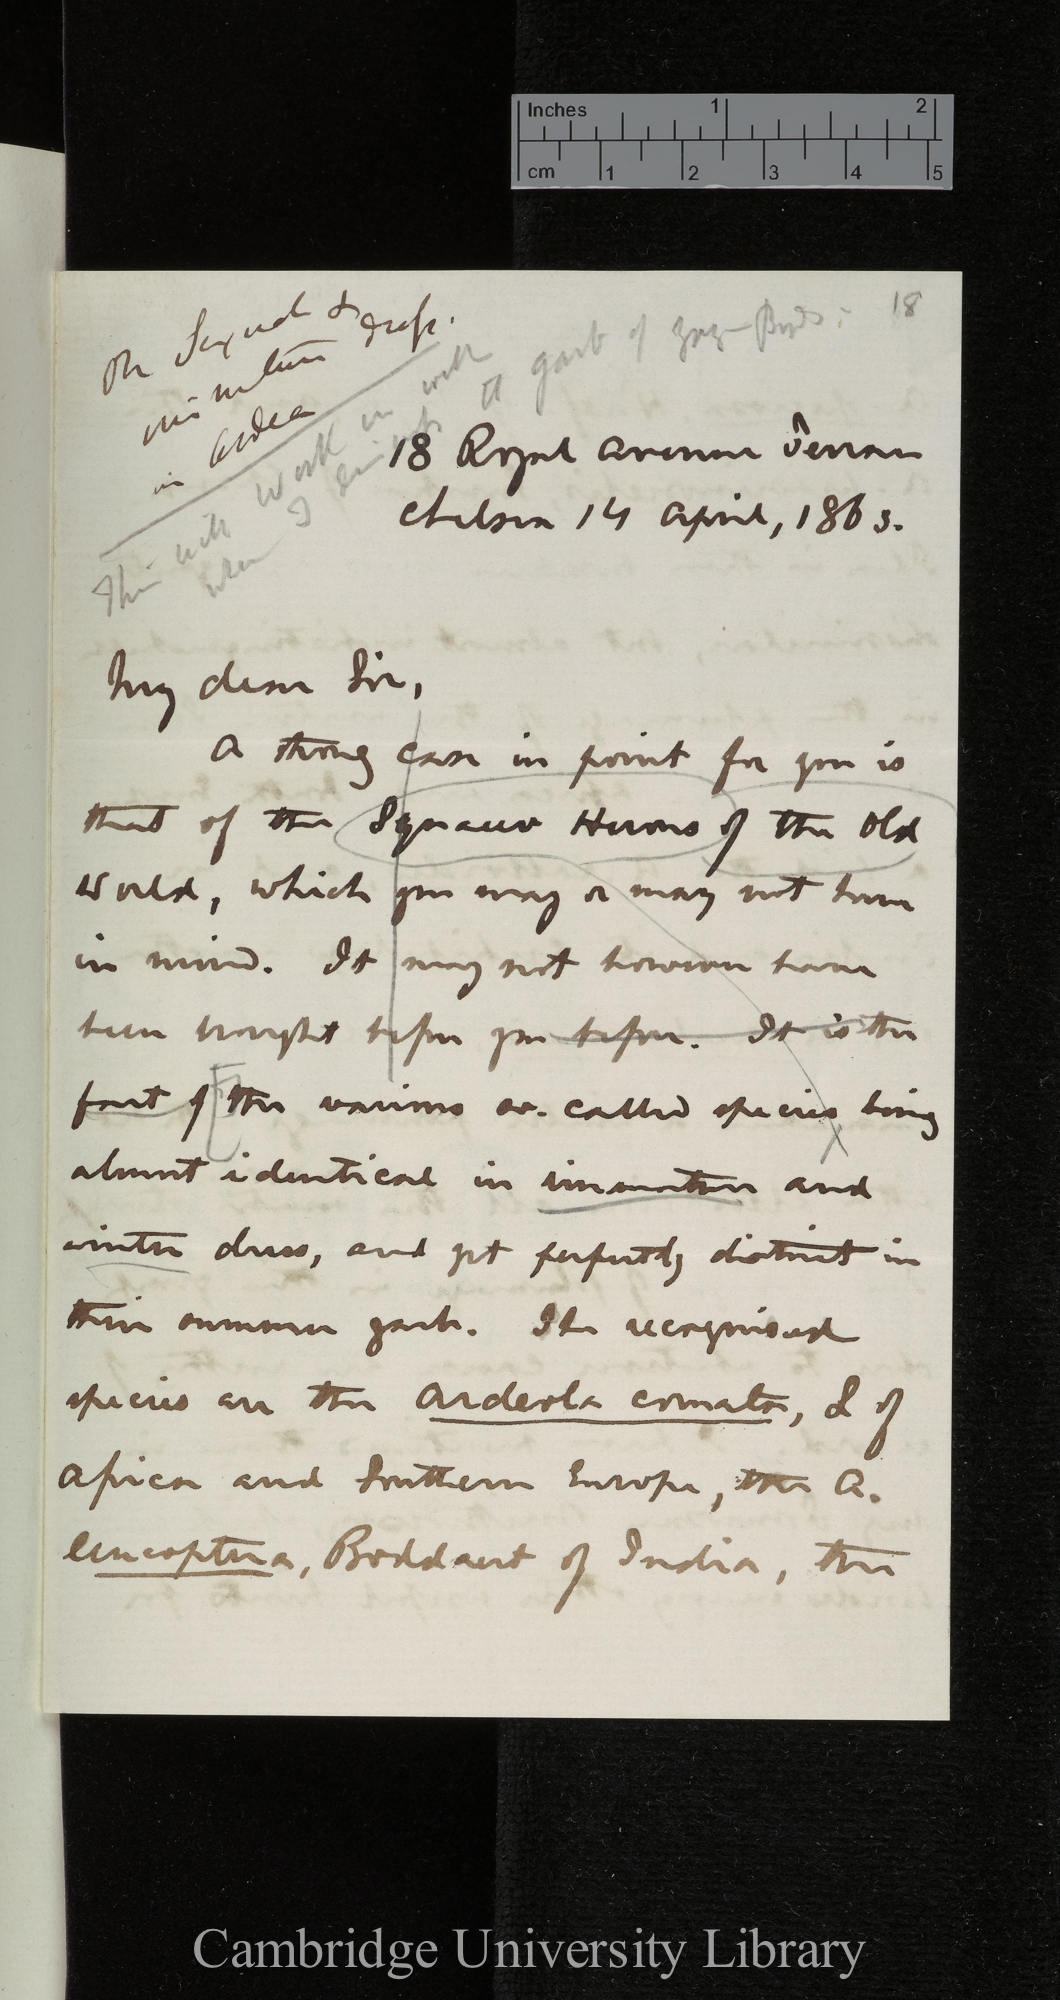 Inches 1 2
cm 1 2 3 4 5
18
On Sexual &
immature dress.
in Ardea
This will work in with
when I garb of Birds
18 Royal Avenue Terrace
Chelsea 14 April, 1863.
My dear Sir,
A strong case in point for you is
that of the Squacco Herons of the Old
World, which you may or may not have
in mind. It may not however have
been brought before you before. It is the
fact of the various so-called species being
almost identical in immature and
winter dress, and yet perfectly distinct in
their summer garb. The recognised
species are the Ardeola comata, L of
Africa and Southern Europe, the A.
leucoptera, Boddaert of India, the
Cambridge University Library